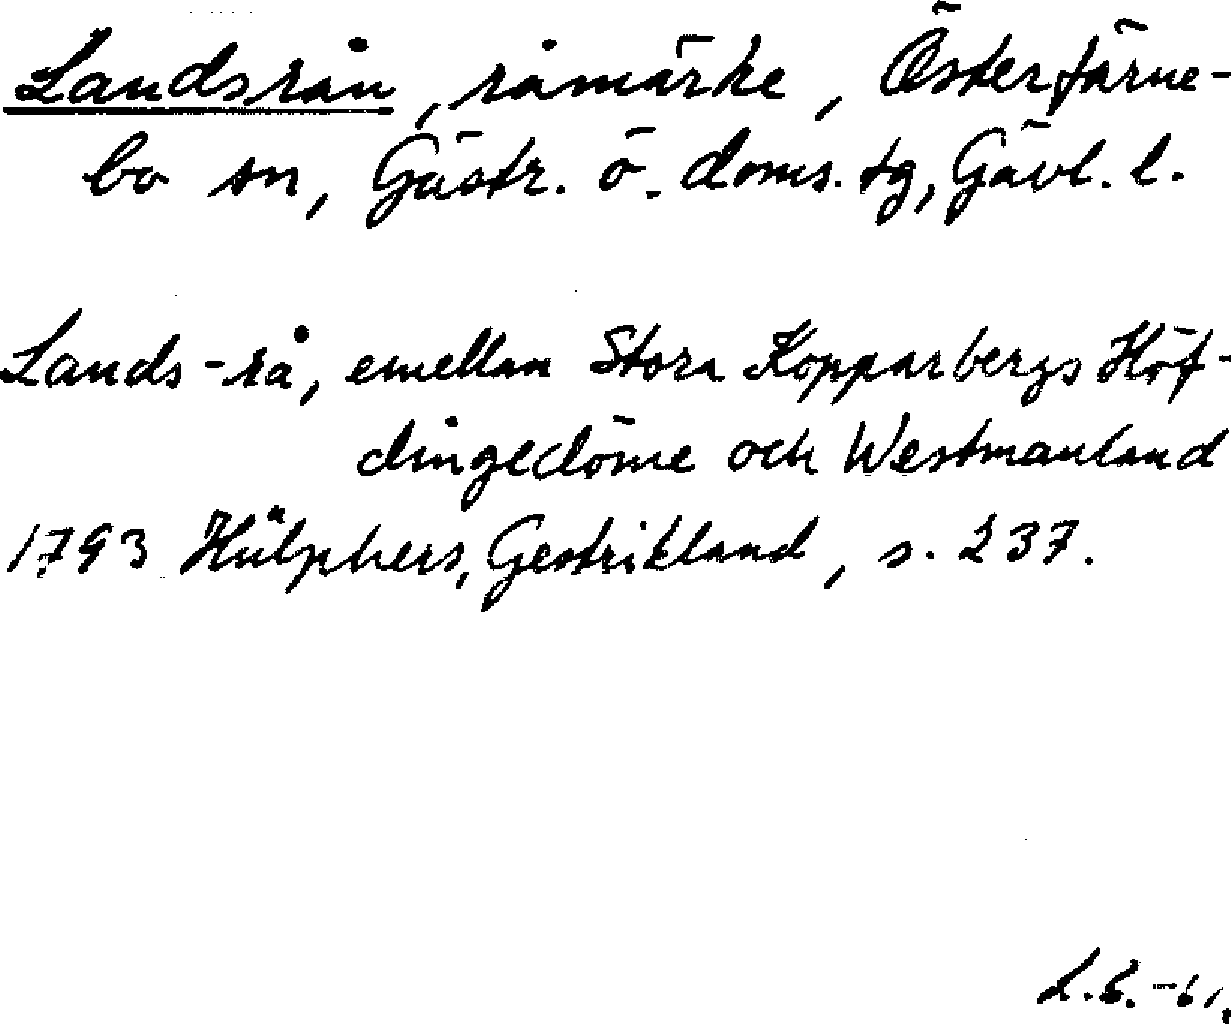 Landsrån, råmärke, Österfärne-
bo sn, Gästr. ö. doms. tg, Gävl. l.
Lands-rå, emellan Stora Kopparbergs Höf-
dingedöme och Westmanland
1793 Hülphers, Gestrikland, s. 237.
L.E. -61.